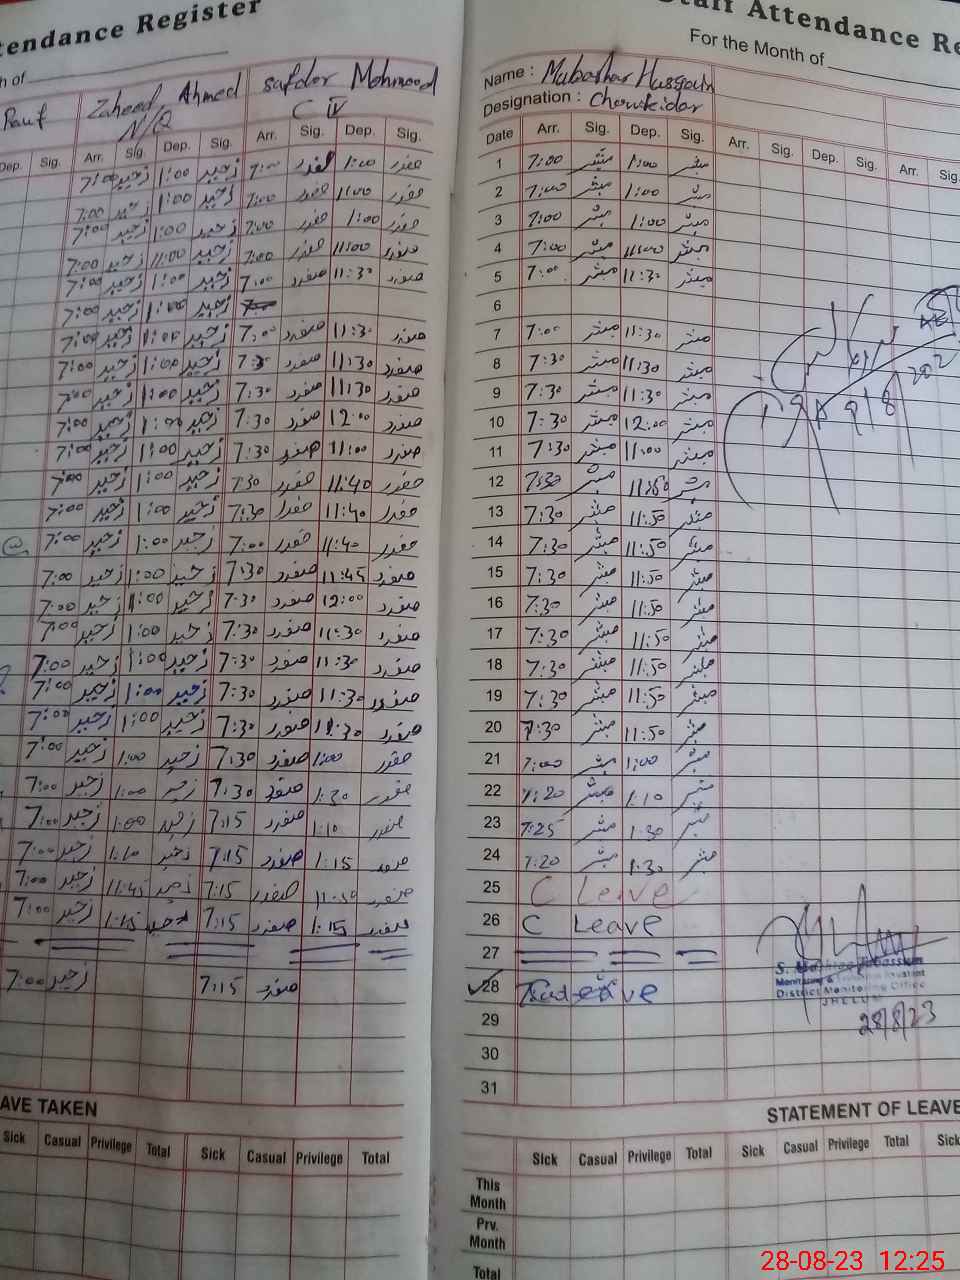 tendance Register
h of
Rauf
Zaheed Ahmed
N/Q
Safdar Mehmood
C IV
Dep. Sig. Arr. Sig. Dep. Sig. Arr. Sig. Dep. Sig.
7:00 زحید 1:00 زحید 7:00 صفدر 1:00 صفدر
7:00 زحید 1:00 زحید 7:00 صفدر 1:00 صفدر
7:00 زحید 1:00 زحید 7:00 صفدر 1:00 صفدر
7:00 زحید 11:00 زحید 7:00 صفدر 11:00 صفدر
7:00 زحید 1:00 زحید 7:00 صفدر 11:30 صفدر
7:00 زحید 1:00 زحید
7:00 زحید 1:00 زحید 7:00 صفدر 11:30 صفدر
7:00 زحید 1:00 زحید 7:30 صفدر 11:30 صفدر
7:00 زحید 1:00 زحید 7:30 صفدر 11:30 صفدر
7:00 زحید 1:00 زحید 7:30 صفدر 12:00 صفدر
7:00 زحید 1:00 زحید 7:30 صفدر 11:00 صفدر
7:00 زحید 1:00 زحید 7:30 صفدر 11:40 صفدر
7:00 زحید 1:00 زحید 7:30 صفدر 11:40 صفدر
7:00 زحید 1:00 زحید 7:00 صفدر 11:40 صفدر
7:00 زحید 1:00 زحید 7:30 صفدر 11:45 صفدر
7:00 زحید 1:00 زحید 7:30 صفدر 12:00 صفدر
7:00 زحید 1:00 زحید 7:30 صفدر 11:30 صفدر
7:00 زحید 1:00 زحید 7:30 صفدر 11:30 صفدر
7:00 زحید 1:00 زحید 7:30 صفدر 11:30 صفدر
7:00 زحید 1:00 زحید 7:30 صفدر 11:30 صفدر
7:00 زحید 1:00 زحید 7:30 صفدر 1:00 صفدر
7:00 زحید 1:00 زحید 7:30 صفدر 1:30 صفدر
7:00 زحید 1:00 زحید 7:15 صفدر 1:10 صفدر
7:00 زحید 1:10 زحید 7:15 صفدر 1:15 صفدر
7:00 زحید 11:45 زحید 7:15 صفدر 11:50 صفدر
7:00 زحید 1:15 زحید 7:15 صفدر 1:15 صفدر
7:00 زحید 7:15 صفدر
AVE TAKEN
Sick Casual Privilege Total Sick Casual Privilege Total
Staff Attendance Re
For the Month of
Name : Mubashar Hussain
Designation : Chowkidar
Date Arr. Sig. Dep. Sig. Arr. Sig. Dep. Sig. Arr. Sig.
1 7:00 مبشر 1:00 مبشر
2 7:00 مبشر 1:00 مبشر
3 7:00 مبشر 1:00 مبشر
4 7:00 مبشر 11:00 مبشر
5 7:00 مبشر 11:30 مبشر
6
7 7:00 مبشر 11:30 مبشر
8 7:30 مبشر 11:30 مبشر
9 7:30 مبشر 11:30 مبشر
10 7:30 مبشر 12:00 مبشر
11 7:30 مبشر 11:00 مبشر
12 7:30 مبشر 11:50 مبشر
13 7:30 مبشر 11:50 مبشر
14 7:30 مبشر 11:50 مبشر
15 7:30 مبشر 11:50 مبشر
16 7:30 مبشر 11:50 مبشر
17 7:30 مبشر 11:50 مبشر
18 7:30 مبشر 11:50 مبشر
19 7:30 مبشر 11:50 مبشر
20 7:30 مبشر 11:50 مبشر
21 7:00 مبشر 1:00 مبشر
22 7:20 مبشر 1:10 مبشر
23 7:25 مبشر 1:30 مبشر
24 7:20 مبشر 1:30 مبشر
25 C Leave
26 C Leave
27
28
29
30
31
Monitoring &
District Monitoring Office
JHELUM
28/8/23
STATEMENT OF LEAVE
Sick Casual Privilege Total Sick Casual Privilege Total Sick
This Month
Prv. Month
Total
28-08-23 12:25